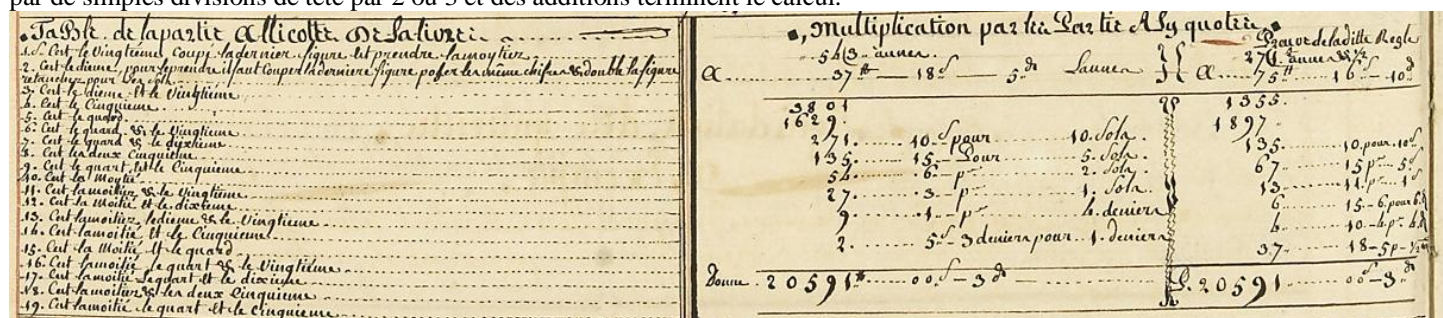 par de simples divisions de tête par 2 ou 3 et des additions terminent le calcul.
Table de la partie Allicotte De la livre
1. S. Cest le vingtieme Coupé la dernier figure et prendre la moytiez
2. Cest le dieme, pour le prendre il faut Couper la derniere figure poser les même chifres & double la figure
retanchez pour des sols
3. Cest le dieme Et le Vingtieme
4. Cest le Cinquieme
5. Cest le quard
6. Cest le quard, & le Vingtieme
7. Cest le quard & le dixtieme
8. Cest les deux Cinquieme
9. Cest le quart, et le Cinquieme
10. Cest la Moytié
11. Cest la moitiez & le Vingtieme
12. Cest la Moitié et le dixtieme
13. Cest la moitiez, le dieme & le Vingtieme
14. Cest la moitié Et le Cinquieme
15. Cest la Moitié et le quard
16. Cest la moitié le quart & le Vingtieme
17. Cest la moitié le quart Et le dixieme
18. Cest la moitiez & les deux Cinquieme
19. Cest la moitié le quart Et le Cinquieme
Multiplication par les Partie Aly quotte
543 annes
A 37 ᵗᵗ 18 ˢ 5 ᵈˢ Launes
3801
1629
271 10 ˢ pour 10. Sols
135 15 Pour 5. Sols
54 6 p ʳ 2. Sols
27 3 p ʳ 1. Sols
9 1 p ʳ 4. deniers
2. 5 ˢ 3 deniers pour 1. deniers
Donne 20591 ᵗᵗ 00 ˢ 3 ᵈ
Preuve de laditte Regle
271 annes & ½
A 75 ᵗᵗ 16 ˢ 10 ᵈ
1355
1897
135 10 pour 10 ˢ
67 15 p ʳ 5 ˢ
13 11 p ʳ 1 ˢ
6 15 - 6 pour 6 ᵈ
4 10 - 6 p ʳ 4 ᵈ
37 18 - 5 p ʳ ½
P. 20591 00 ˢ 3 ᵈ